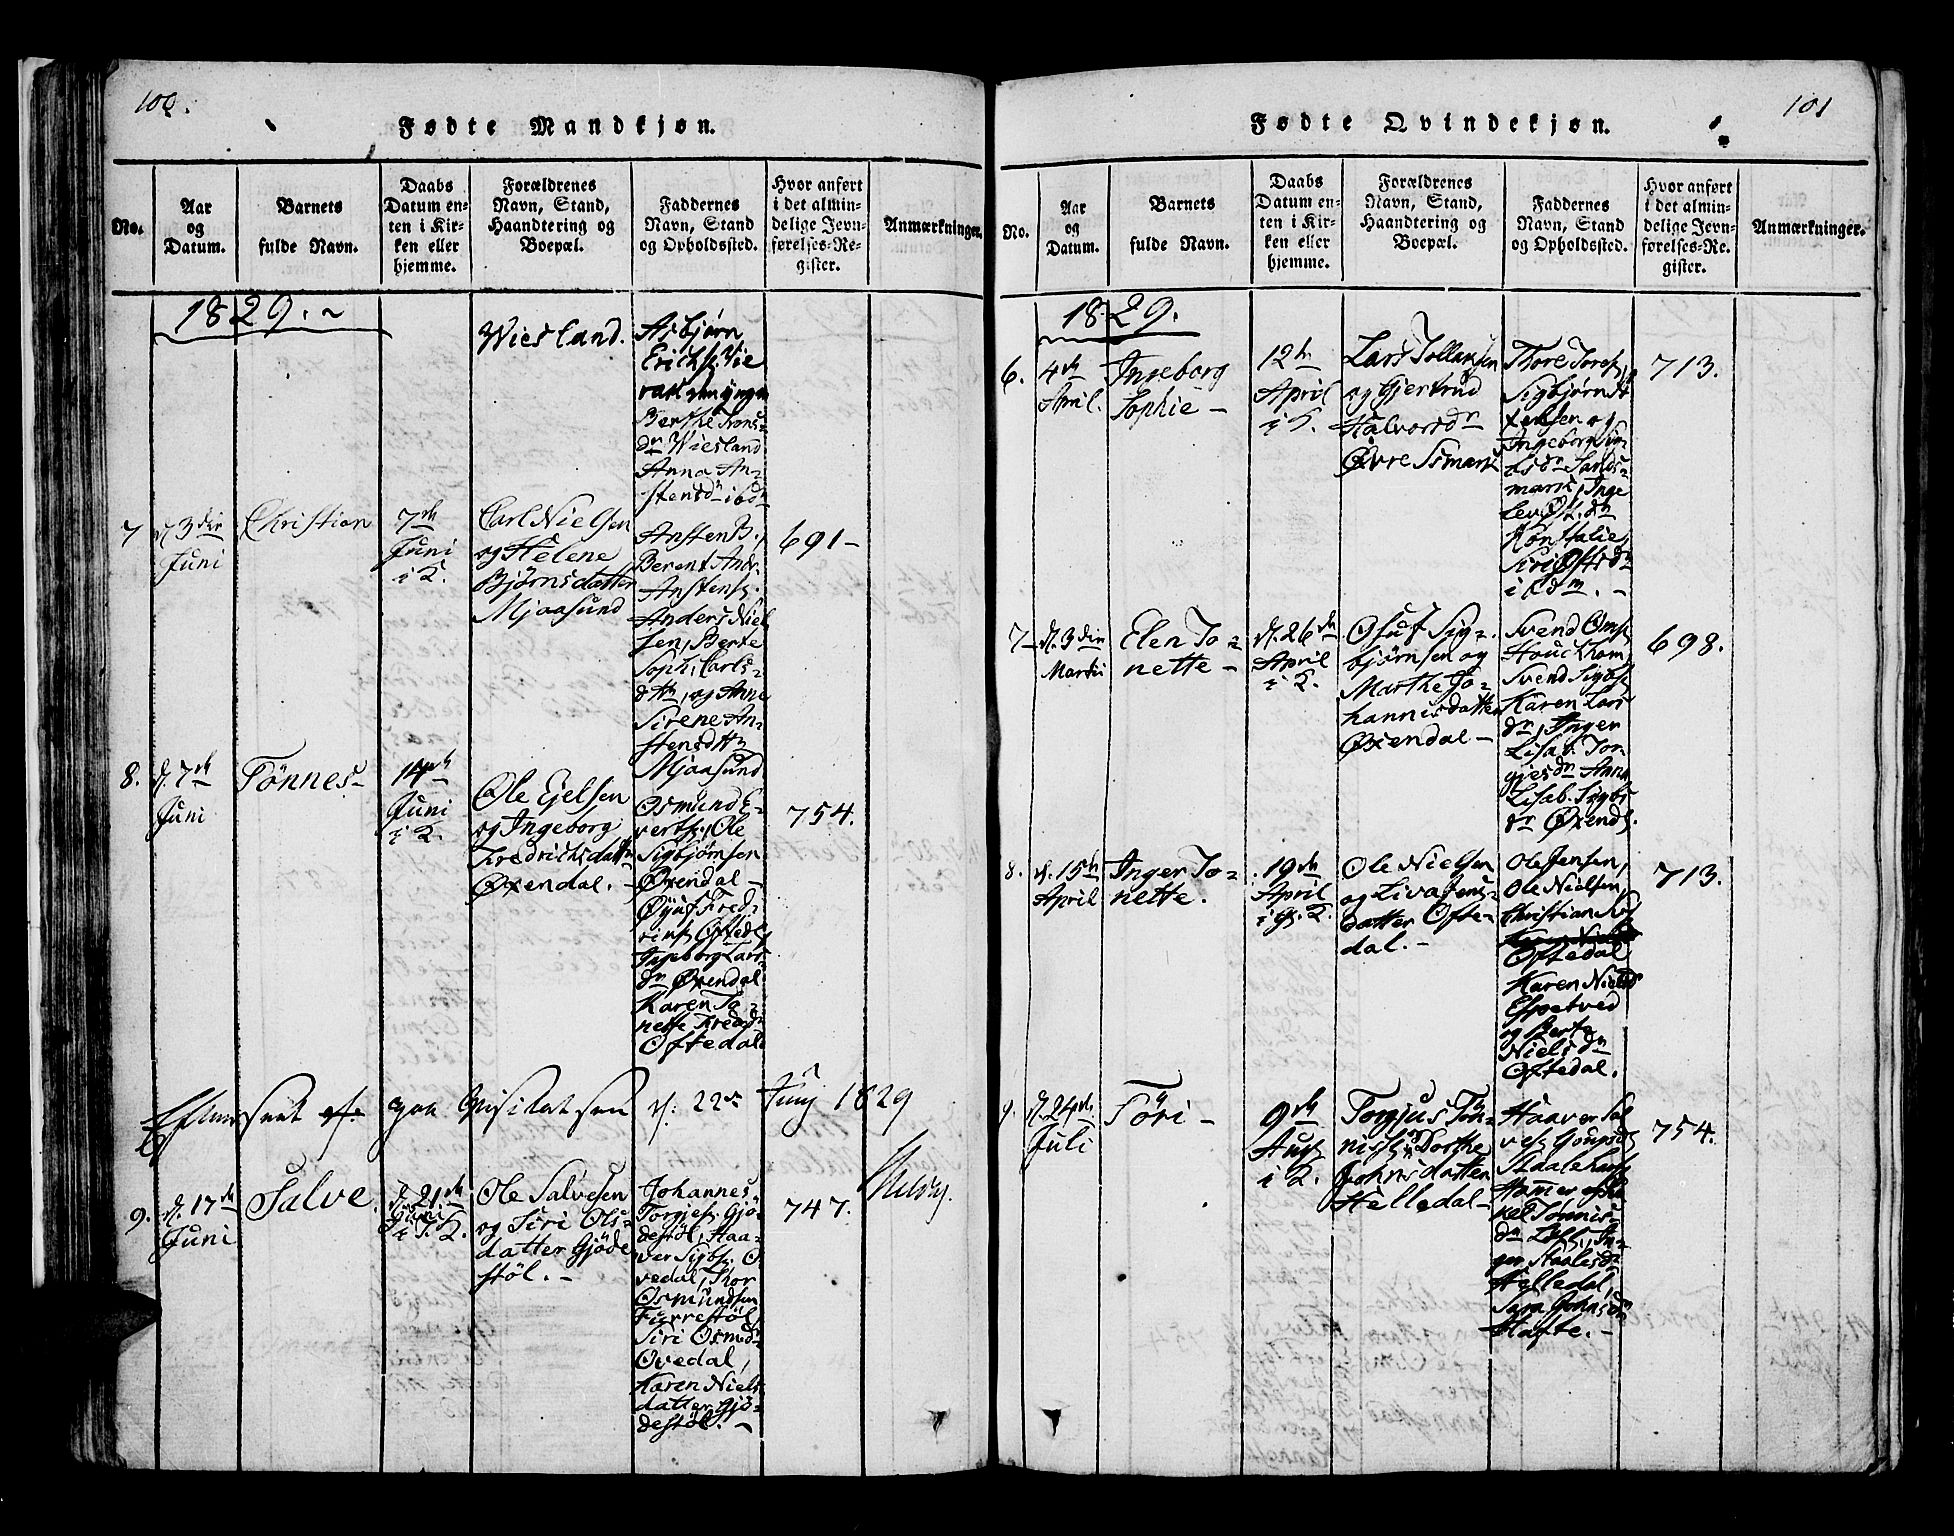 100.
Fødte Mandkjøn.
No.
Aar
og
Datum.
Barnets
fulde Navn.
Daabs
Datum en-
ten i Kir-
ken eller
hjemme.
Forældrenes
Navn, Stand,
Haandtering og
Boepæl.
Faddernes
Navn, Stand
og Opholdssted.
Hvor anført
i det almin-
delige Jevn-
førelses-Re-
gister.
Anmærkninger.
1829.
Wiesland.
Asbjørn
Berthe
dr Wiesland
Anna An-
stensdr ibdm
7
d. 3die
Juni
Christian
7de
Juni
i K.
Carl Nielsen
og Helene
Bjørnsdatter
Mjaasund
Ansten B.
Berent Andr.
Anstens.
Anders Niel
sen, Berte
Soph: Carls-
dtr, og Anne
Sirene An-
stensdtr
Mjaasund
691-
8.
d. 7de
Juni
Tönnes-
14de
Juni
i K.
Ole Ejelsen
og Ingeborg
Fredrichsdattr
Øxendal.-
Osmund E-
verts., Ole
Sigbjørnsen
Øxendal-
Fred-
Ingeborg Lars
dr Øxendal
Karen To-
nette Fredsdr
Oftedal
754.
d. 22de Junj 1829
9.
d. 17de
Juni
Salve
d. 21de
Juni
i K.
Ole Salvesen
og Siri Ols-
datter Gjöde
støl.-
Johannes
Torgjes. Gjö-
destøl, Haa-
ver Sigbs. O-
vedal, Thor
Osmundsen
Furrestøl,
Siri Osmdr
Ovedal,
Karen Niels
datter Gjö-
destøl.-
747.
101
Fødte Qvindekjøn.
No.
Aar
og
Datum.
Barnets
fulde Navn.
Daabs
Datum en-
ten i Kir-
ken eller
hjemme.
Forældrenes
Navn, Stand,
Haandtering og
Boepæl.
Faddernes
Navn, Stand
og Opholdssted.
Hvor anført
i det almin-
delige Jevn-
førelses-Re-
gister.
Anmærkninger.
1829.
6.
4de
April.
Ingeborg
Sophie-
12te
April
i K.
Lars Tollaksen
og Gjertrud
Halvorsdr
Øvre
Thore
Sigbjørn
og
Ingeborg
i Edm.-
713.
7
d. 3die
Martii
Elen To-
nette-
d. 26de
April
i K.
Osuf Sig-
bjørnsen og
Marthe Jo-
hannisdatter
Øxendal-
Svend
Svend Sigbs.
Karen Lars
dr, Inger
Lisab. Tor-
gjesdr Anne
Lisab. Sigbs
dr Øxend.
698.
8.
d. 15de
April
Inger To-
nette.
19de
April
i K.
Ole Nielsen
og Liva Jens-
datter Ofte-
dal.-
Ole Jensen,
Ole Nielsen,
Christian
Oftedal
Karen Niels
Espetved
og Berte
Nielsdr
Oftedal.
713.
9.
d. 24de
Juli
Töri-
9de
Aug
i K.
Torgjus Tön-
nis. Dorthe
Johnsdatter
Helledal-
Haaver Sal
ves.
Tönnis-
dr
Helledal,
Sara Johnsdr
Hafte.-
754.